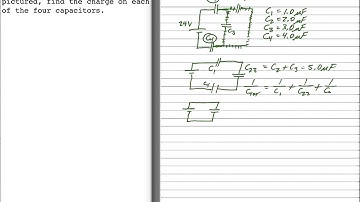 pictured, find the charge on each
of the four capacitors.
24V
C₃
C₄
C₁ = 1.0 μF
C₂ = 2.0 μF
C₃ = 3.0 μF
C₄ = 4.0 μF
C₁
C₄
C₂₃ = C₂ + C₃ = 5.0 μF
1/C = 1/C₁ + 1/C₂₃ + 1/C